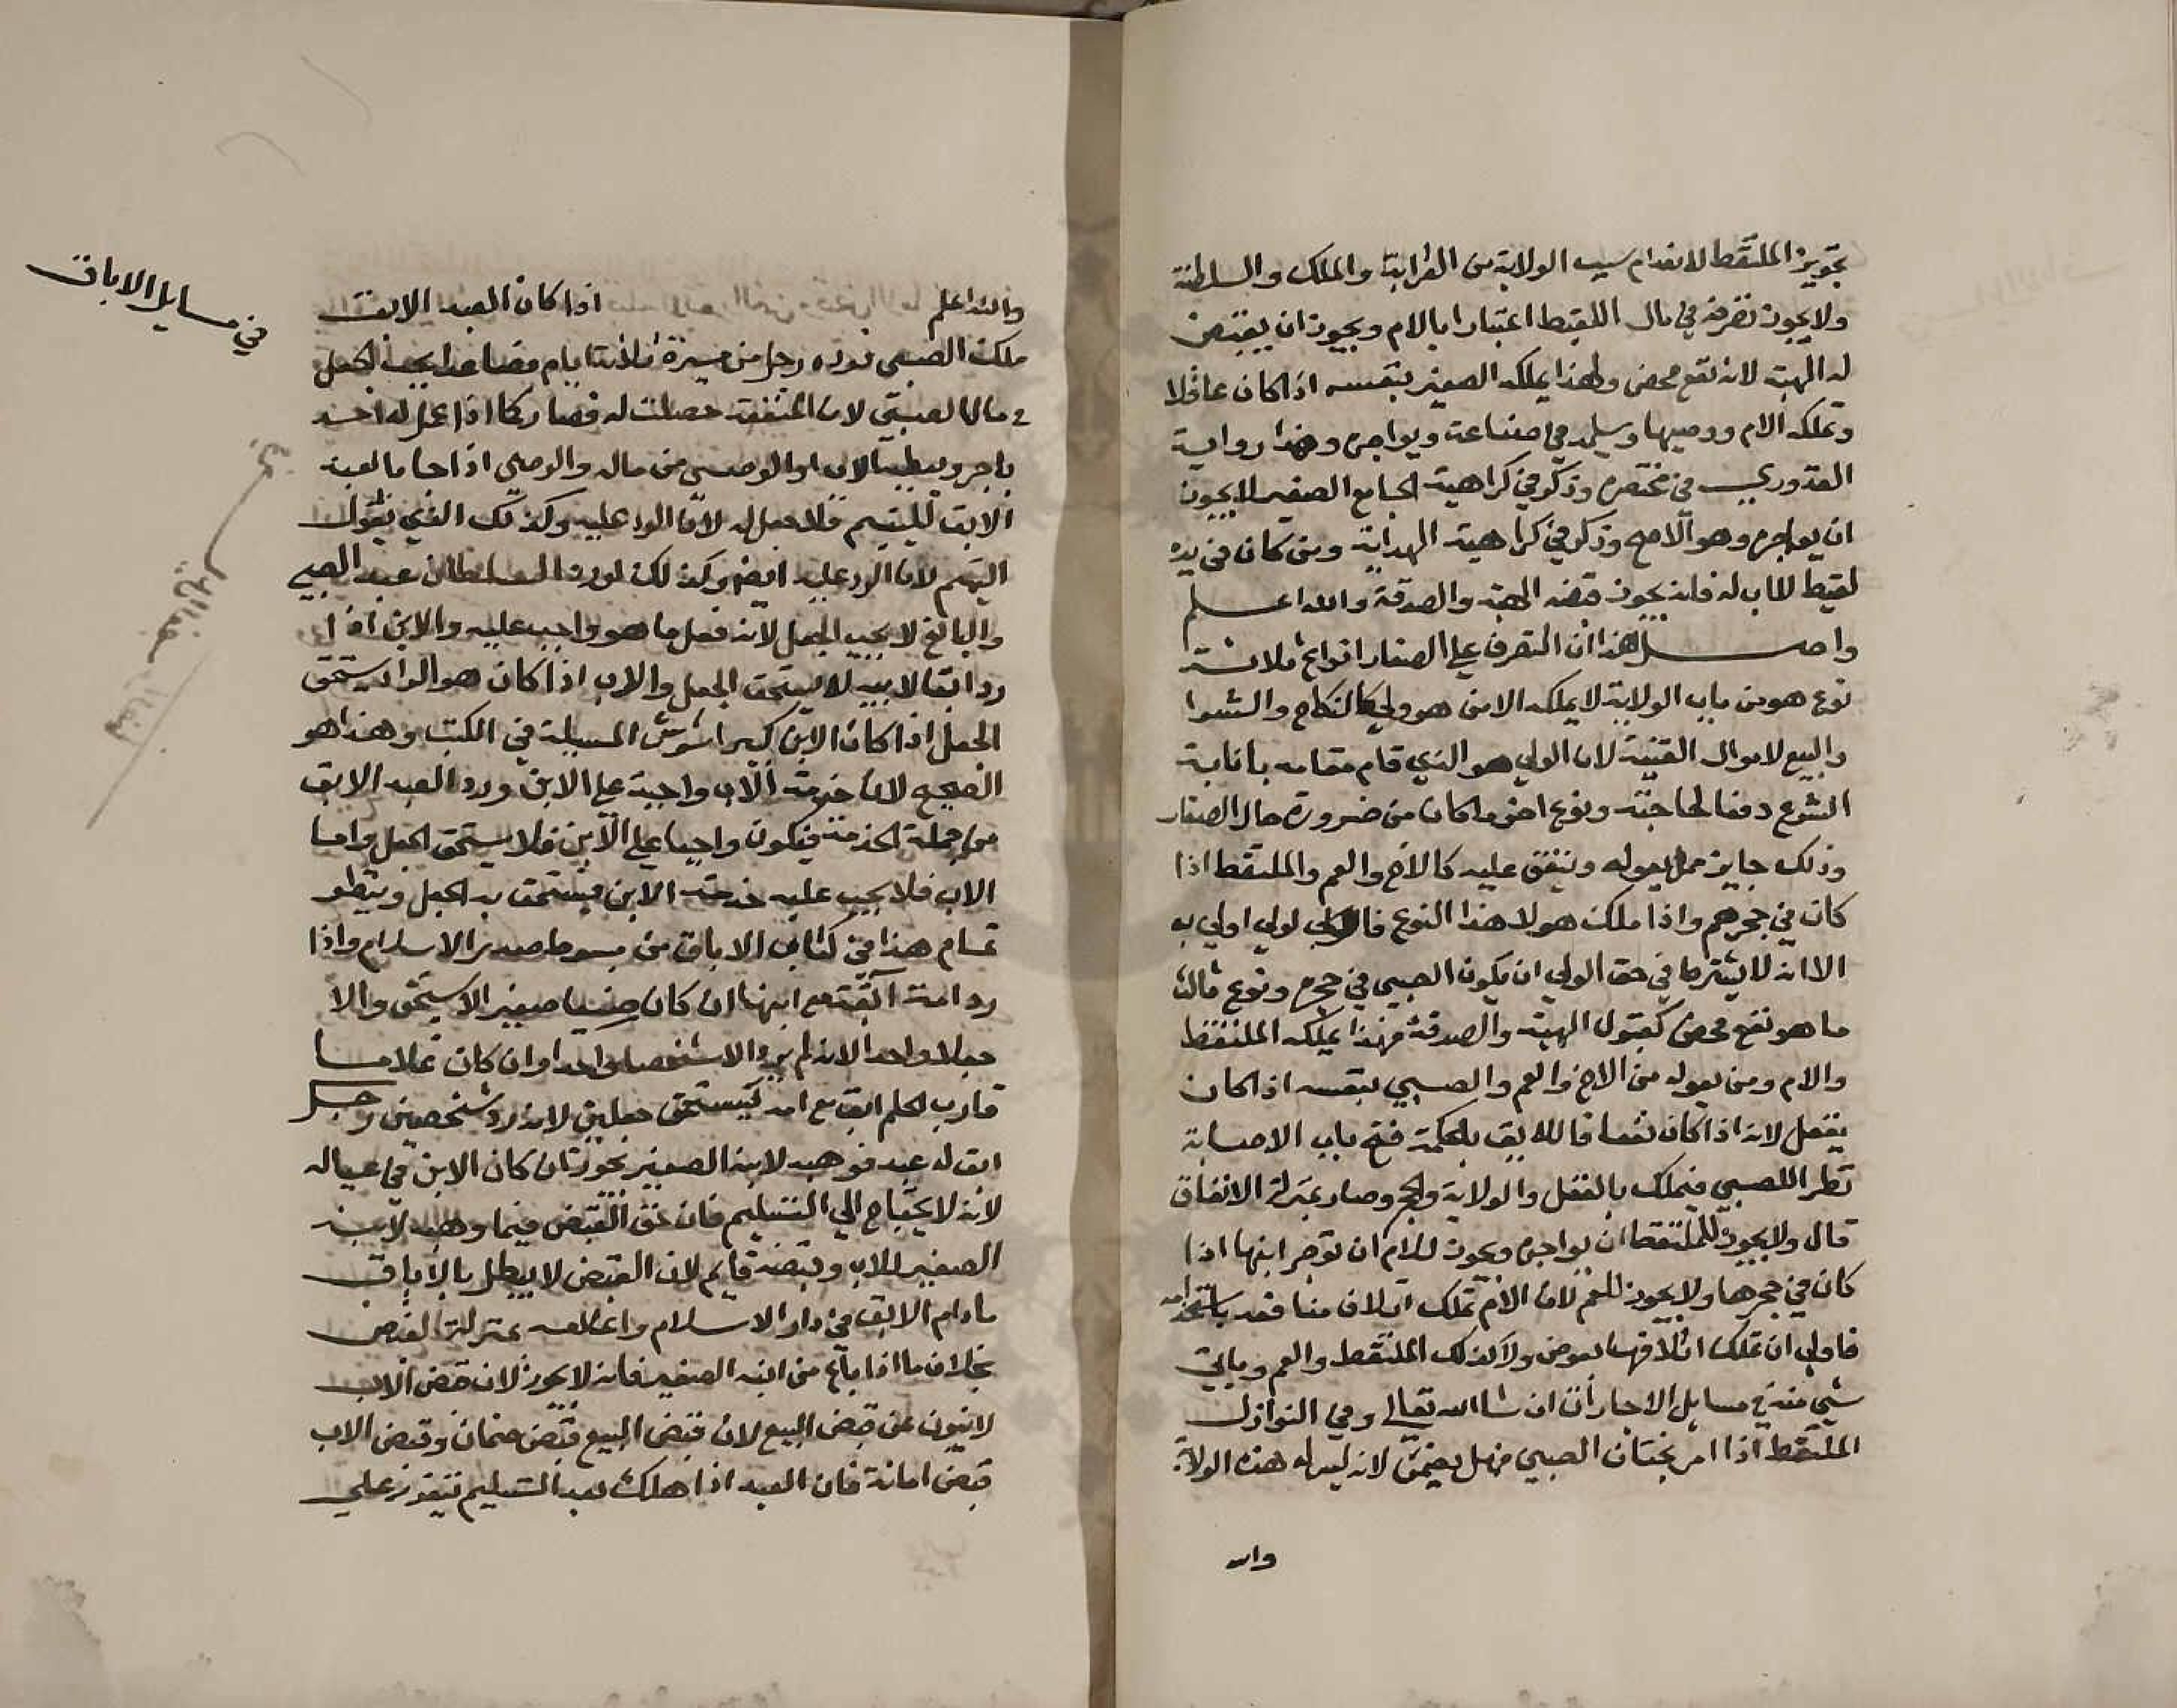 تجويز الملتقط لانعدام سبب الولاية من القرابة والملك والسلطنة
ولا يجوز تصرفه في مال اللقيط اعتبارا بالام ويجوز ان يقبض
له الهبة لانه نفع محض ولهذا يملكه الصغير بنفسه اذا كان عاقلا
وتملكه الام ووصيها ويسلمه في صناعة ويواجره وهذا رواية
القدوري في مختصره وذكر في كراهية الجامع الصغير لا يجوز
ان يواجره وهو الاصح وذكر في كراهية الهداية ومن كان في يده
لقيط لا اب له فانه يجوز قبضه الهبة والصدقة والله اعلم
واصل هذا ان التصرف على الصغار انواع ثلاثة
نوع هو من باب الولاية لا يملكه الا من هو ولي كالنكاح والشرا
والبيع لاموال القنية لان الولي هو الذي قام مقامه بانابة
الشرع دفعا لحاجته ونوع اخر ما كان من ضرورة حال الصغار
وذلك جايز ممن يعوله وينفق عليه كالاخ والعم والملتقط اذا
كان في حجرهم واذا ملك هولا هذا النوع فالولي اولي به
الا انه لا يشترط في حق الولي ان يكون الصبي في حجره ونوع ثالث
ما هو نفع محض كقبول الهبة والصدقة فهذا يملكه الملتقط
والام ومن يعوله من الاخ والعم والصبي بنفسه اذا كان
يعقل لانه اذا كان نفعا فاللايق بالحكمة فتح باب الاصابة
نظرا للصبي فيملك بالعقل والولاية والحجر وصار بمنزلة الانفاق
قال ولا يجوز للملتقط ان يواجره ويجوز للام ان توجر ابنها اذا
كان في حجرها ولا يجوز للعم لان الام تملك اتلاف منافعه باستخدامه
فاولي ان تملك اتلافها بعوض ولا كذلك الملتقط والعم وياتي
شي منه في مسايل الاجارات ان شا الله تعالي وفي النوازل
الملتقط اذا امر بختان الصبي فهل يضمن لانه ليس له هذه الولاية
والله
في مسايل الاباق
والله اعلم اذا كان العبد الابق
ملك الصبي فرده رجل من مسيرة ثلاثة ايام فصاعدا يجب الجعل
في مال الصبي لان المنفعة حصلت له فصار كما اذا عمل له احد
باجر ويعطيه الاب او الوصي من ماله والوصي اذا جا بالعبد
الابق لليتيم فلا جعل له لان الرد عليه وكذلك الذي يعول
اليتيم لان الرد عليه ايضا وكذلك لو رد السلطان عبد الصبي
والبالغ لا يجب الجعل لانه فعل ما هو واجب عليه والابن اذا
رد ابقا لابيه لا يستحق الجعل والاب اذا كان هو الراد يستحق
الجعل اذا كان الابن كبيرا المسيلة في الكتب وهذا هو
الصحيح لان خدمة الاب واجبة على الابن ورد العبد الابق
من جملة الخدمة فيكون واجبا على الابن فلا يستحق الجعل واما
الاب فلا يجب عليه خدمة الابن فيستحق به الجعل وينظر
تمام هذا في كتاب الاباق من مبسوط صدر الاسلام واذا
رد امة ابقة مع ابنها ان كان صبيا صغيرا لا يستحق والا
جعلا واحدا لانه لم يرد الا شخصا واحدا وان كان غلاما
قارب الحلم ابق مع امه يستحق جعلين لانه رد شخصين رجل
ابق له عبد فوهبه لابنه الصغير يجوز ان كان الابن في عياله
لانه لا يحتاج الي التسليم فان حق القبض فيما وهبه لابنه
الصغير للاب وقبضه قايم لان القبض لا يبطل بالاباق
ما دام الابق في دار الاسلام بمنزلة القبض
بخلاف ما اذا باع من ابنه الصغير فانه لا يجوز لان قبض الاب
لا ينوب عن قبض البيع لان قبض البيع قبض ضمان وقبض الاب
قبض امانة فان العبد اذا هلك بعد التسليم يتقرر علي